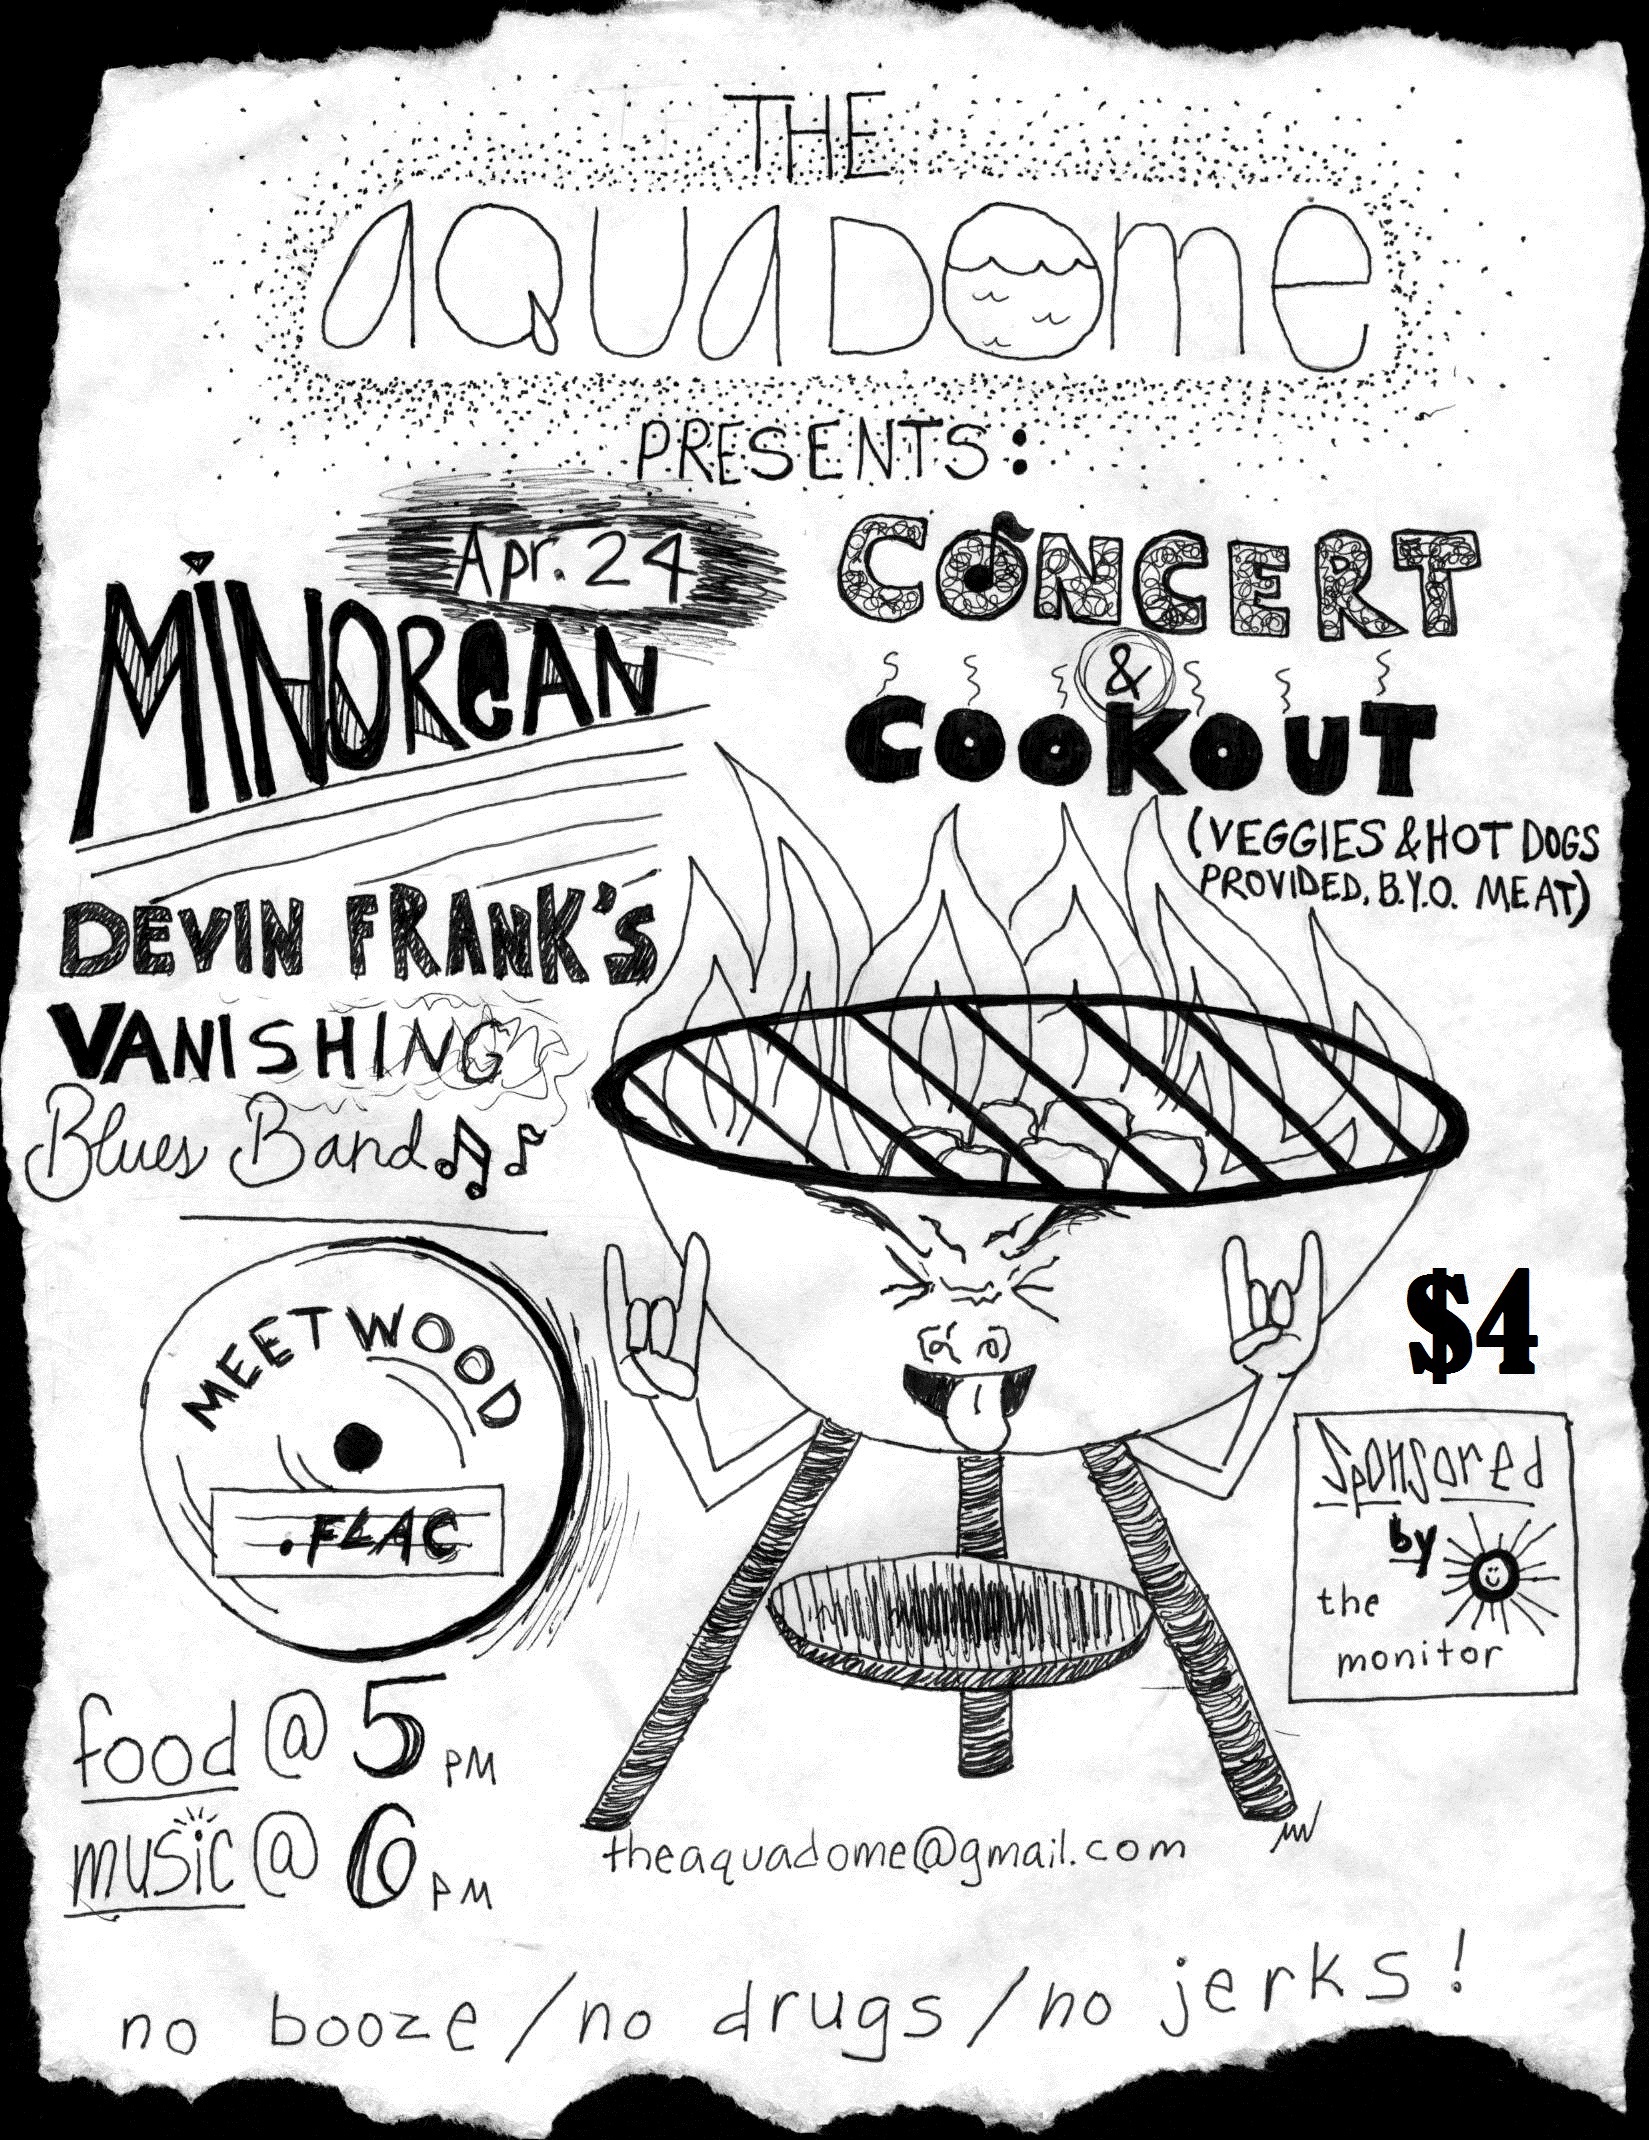 THE
aQUaDOme
PRESENTS:
Apr. 24
MiNORCAN
CONCERT
&
COOKOUT
(VEGGIES & HOT DOGS
PROVIDED, B.Y.O. MEAT)
DEVIN FRANK'S
VANISHING
Blues Band
MEETWOOD
.FLAC
$4
Sponsored
by
the
monitor
food @ 5 PM
music @ 6 PM
theaquadome@gmail.com
no booze / no drugs / no jerks!